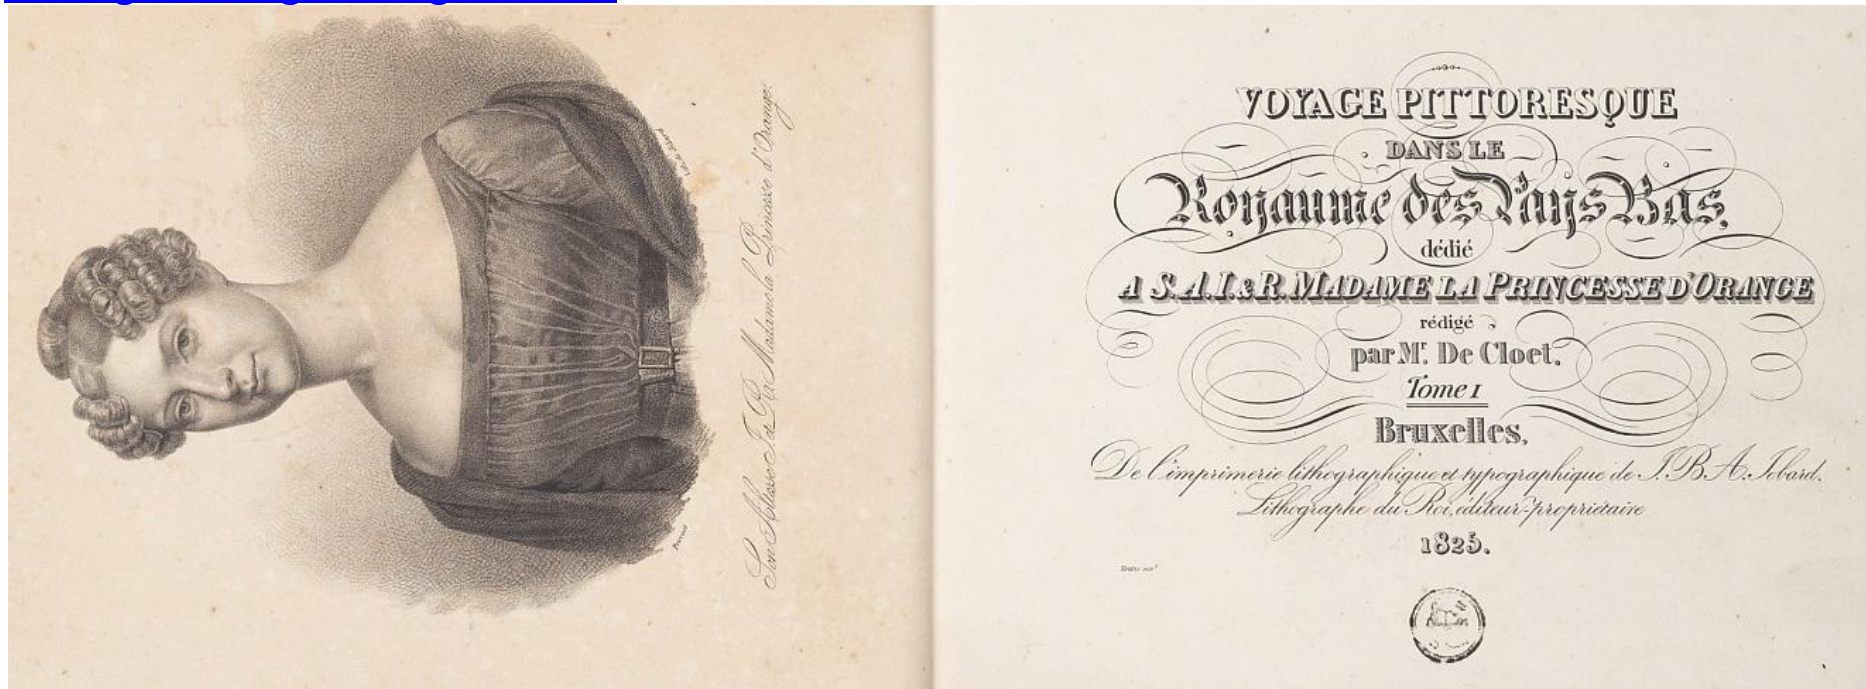 Son Altesse I. et R. Madame la Princesse d'Orange.
VOYAGE PITTORESQUE
DANS LE
Royaume des Pays Bas,
dédié
A S.A.I.&R. MADAME LA PRINCESSE D'ORANGE
rédigé
par Mr. De Cloet.
Tome I
Bruxelles,
De l'imprimerie lithographique et typographique de J. B. A. Jobard,
Lithographe du Roi, éditeur-propriétaire
1825.